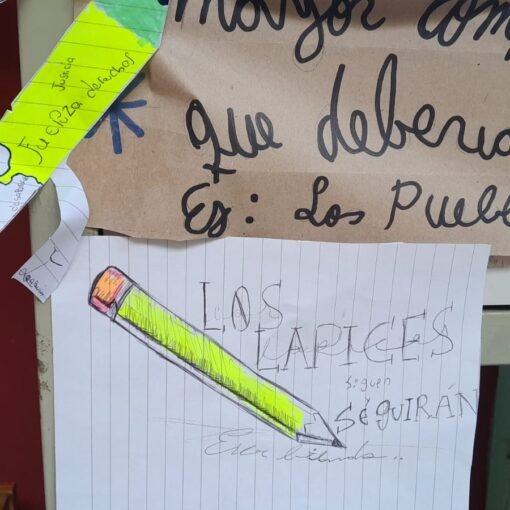 Mayor com
que deberia
Ej: Los Pueb
Justicia
Fuerza derechos
LOS
LAPICES
siguen
SEGUIRÁN
Escribiendo..